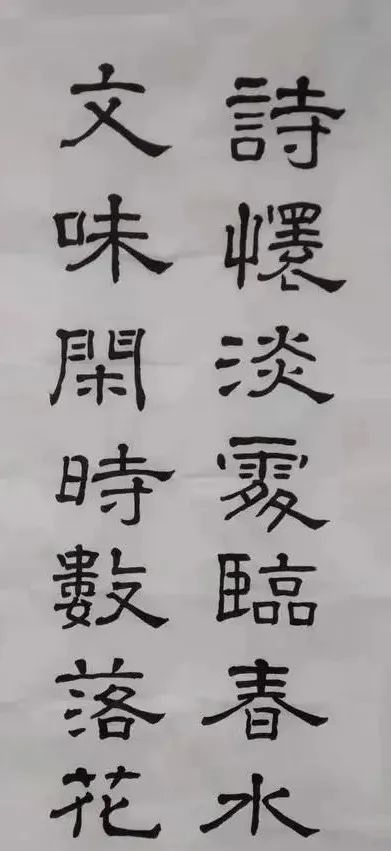 詩懷淡處臨春水
文味閑時數落花